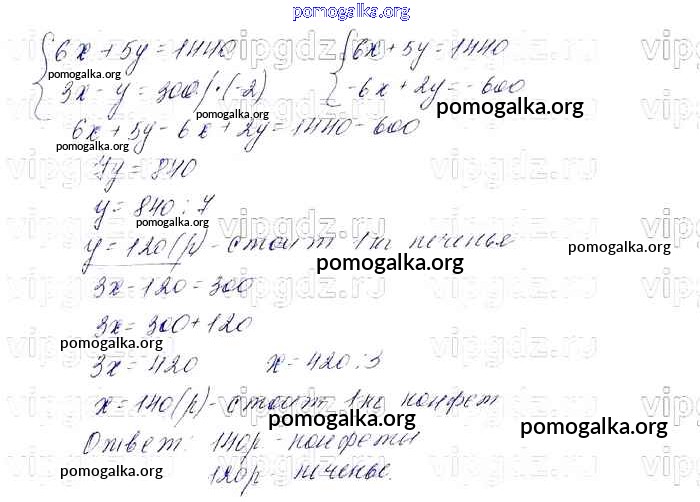 pomogalka.org
{ 6x + 5y = 1440 { 6x + 5y = 1440
{ 3x - y = 300 | · (-2) { -6x + 2y = -600
pomogalka.org
pomogalka.org
pomogalka.org
6x + 5y - 6x + 2y = 1440 - 600
7y = 840
y = 840 : 7
pomogalka.org
y = 120 (р) - стоит 1 кг печенья
pomogalka.org
pomogalka.org
3x - 120 = 300
3x = 300 + 120
pomogalka.org
3x = 420 x = 420 : 3
x = 140 (р) - стоит 1 кг конфет
pomogalka.org
pomogalka.org
Ответ: 140р - конфеты
120р - печенье.
pomogalka.org
vipgdz.ru